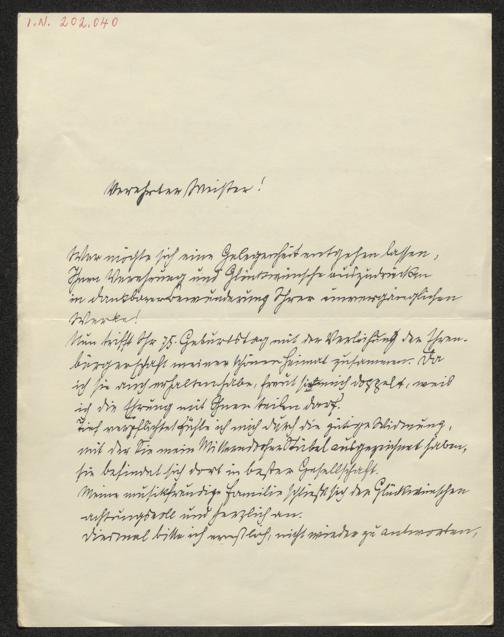 I.N. 202.040
Verehrter Meister!
Wer möchte sich eine Gelegenheit entgehen lassen,
Ihnen Verehrung und Glückwünsche auszudrücken
in dankbarer Bewunderung Ihrer unvergänglichen
Werke!
Nun trifft Ihr 75. Geburtstag mit der Verleihung der Ehren-
bürgerschaft meiner schönen Heimat zusammen. Da
ich sie auch erhalten habe, freut sie mich doppelt, weil
ich die Ehrung mit Ihnen teilen darf.
Tief verpflichtet fühle ich mich durch die gütige Widmung,
mit der Sie mein Stübel ausgezeichnet haben,
sie befindet sich dort in bester Gesellschaft.
Meine musikfreudige Familie schließt sich den Glückwünschen
achtungsvoll und herzlich an.
Diesmal bitte ich ernstlich, nicht wieder zu antworten,